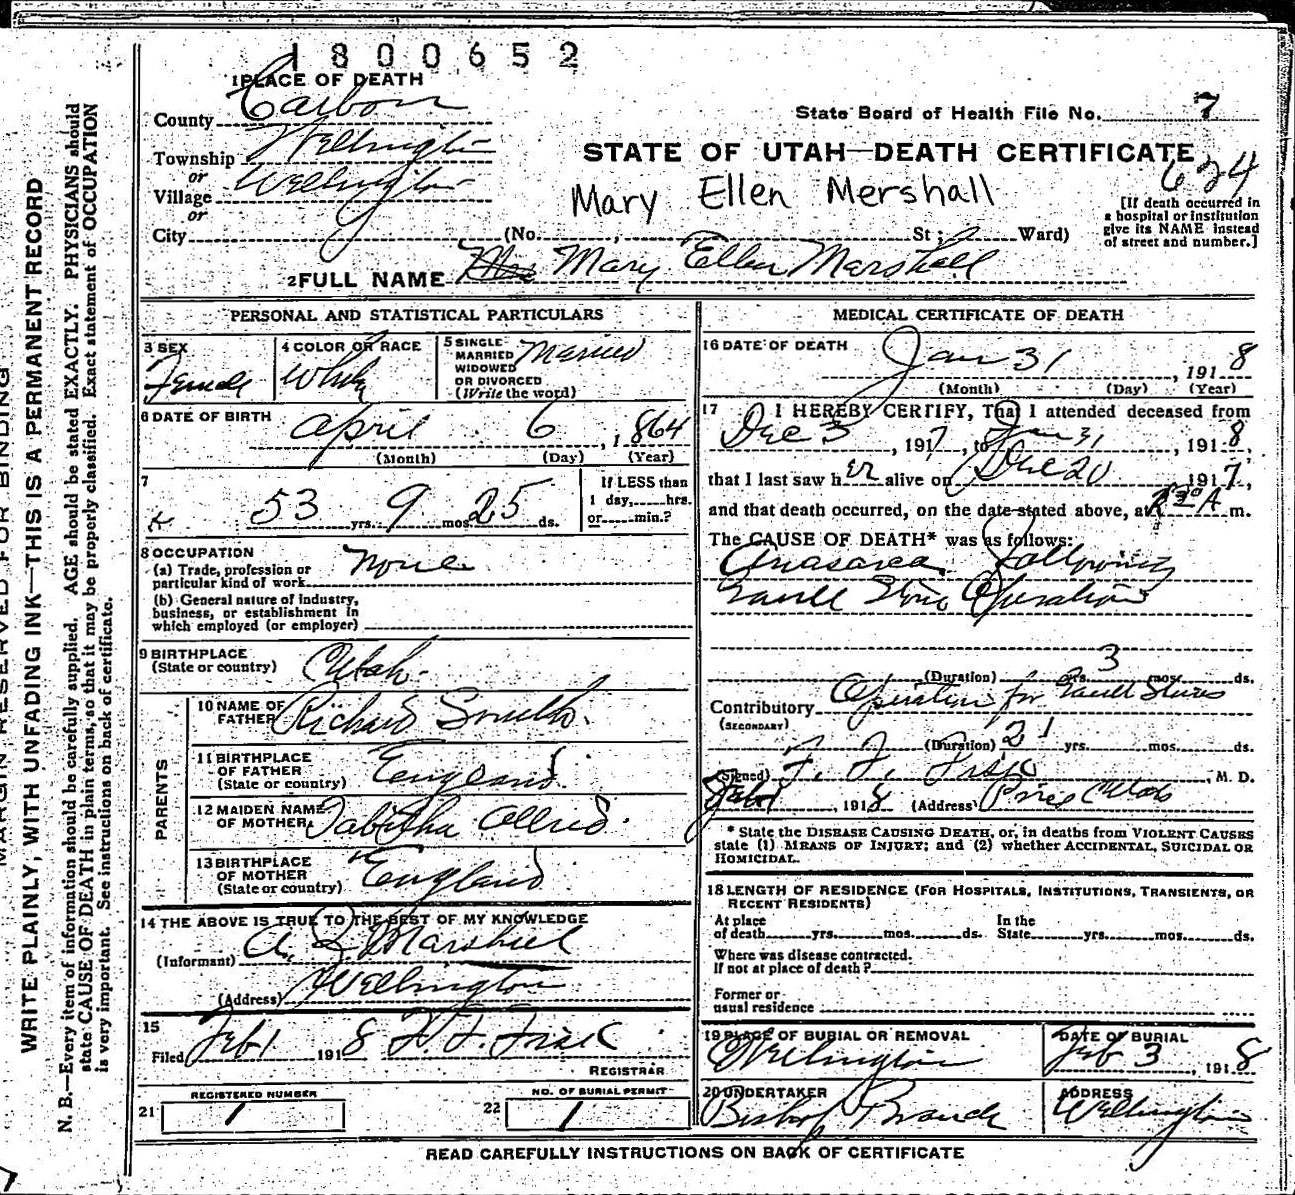 1800652
1 PLACE OF DEATH
County Carbon
State Board of Health File No. 7
Township Wellington
STATE OF UTAH—DEATH CERTIFICATE
624
or
Village Wellington
Mary Ellen Mershall
[If death occurred in a hospital or institution give its NAME instead of street and number.]
or
City (No. St; Ward)
2 FULL NAME Mrs Mary Ellen Marshall
PERSONAL AND STATISTICAL PARTICULARS
3 SEX
Female
4 COLOR OR RACE
White
5 SINGLE
MARRIED
WIDOWED
OR DIVORCED
(Write the word)
Married
6 DATE OF BIRTH
April 6, 1864
(Month) (Day) (Year)
7
53 yrs. 9 mos. 25 ds.
If LESS than
1 day, hrs.
or min.?
8 OCCUPATION
(a) Trade, profession or
particular kind of work None
(b) General nature of industry,
business, or establishment in
which employed (or employer)
9 BIRTHPLACE
(State or country) Utah.
PARENTS
10 NAME OF
FATHER Richard Smith.
11 BIRTHPLACE
OF FATHER
(State or country) England.
12 MAIDEN NAME
OF MOTHER Tabitha Allred.
13 BIRTHPLACE
OF MOTHER
(State or country) England
14 THE ABOVE IS TRUE TO THE BEST OF MY KNOWLEDGE
(Informant) A. Z. Marshall
(Address) Wellington
15
Filed Feb 1 1918 F. F. Fisk
REGISTRAR
REGISTERED NUMBER
21 1
NO. OF BURIAL PERMIT
22 1
MEDICAL CERTIFICATE OF DEATH
16 DATE OF DEATH
Jan 31, 1918
(Month) (Day) (Year)
17 I HEREBY CERTIFY, That I attended deceased from
Dec 3, 1917, to Jan 31, 1918
that I last saw her alive on Dec 20 1917,
and that death occurred, on the date stated above, at A m.
The CAUSE OF DEATH* was as follows:
Anasarca Following
Gaull Stone Operation
(Duration) yrs. 3 mos. ds.
Contributory Operation for Gaull Stones
(SECONDARY)
(Duration) yrs. mos. ds.
(Signed) F. F. Fisk, M. D.
Feb 1, 1918 (Address) Price Utah
* State the DISEASE CAUSING DEATH, or, in deaths from VIOLENT CAUSES
state (1) MEANS OF INJURY; and (2) whether ACCIDENTAL, SUICIDAL OR
HOMICIDAL.
18 LENGTH OF RESIDENCE (FOR HOSPITALS, INSTITUTIONS, TRANSIENTS, OR
RECENT RESIDENTS)
At place
of death yrs. mos. ds.
In the
State yrs. mos. ds.
Where was disease contracted.
If not at place of death?
Former or
usual residence
19 PLACE OF BURIAL OR REMOVAL
Wellington
DATE OF BURIAL
Feb 3, 1918
20 UNDERTAKER
Bishop Branch
ADDRESS
Wellington
READ CAREFULLY INSTRUCTIONS ON BACK OF CERTIFICATE
MARGIN RESERVED FOR BINDING
WRITE PLAINLY, WITH UNFADING INK—THIS IS A PERMANENT RECORD
N. B.—Every item of information should be carefully supplied. AGE should be stated EXACTLY. PHYSICIANS should
state CAUSE OF DEATH in plain terms, so that it may be properly classified. Exact statement of OCCUPATION
is very important. See instructions on back of certificate.